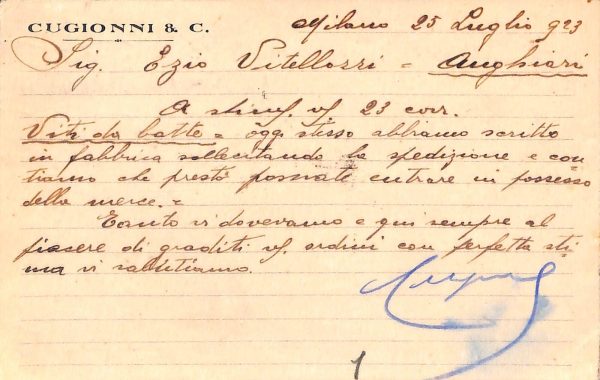 CUGIONNI & C.
Milano 25 Luglio 923
Sig. Ezio Vitellozzi = Anghiari
A stim/. v/. 23 corr.
Viti da botte = oggi stesso abbiamo scritto
in fabbrica sollecitando la spedizione e con
tiamo che presto possiate entrare in possesso
della merce. =
Tanto vi dovevamo e qui sempre al
piacere di graditi v/. ordini con perfetta sti
ma vi salutiamo.
1